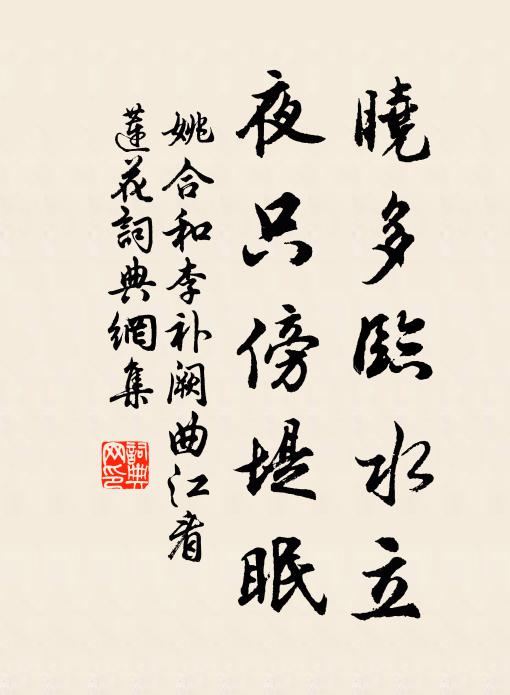 曉多臨水立
夜只傍堤眠
姚合和李补阙曲江看
蓮花詞典網集
詞典網印